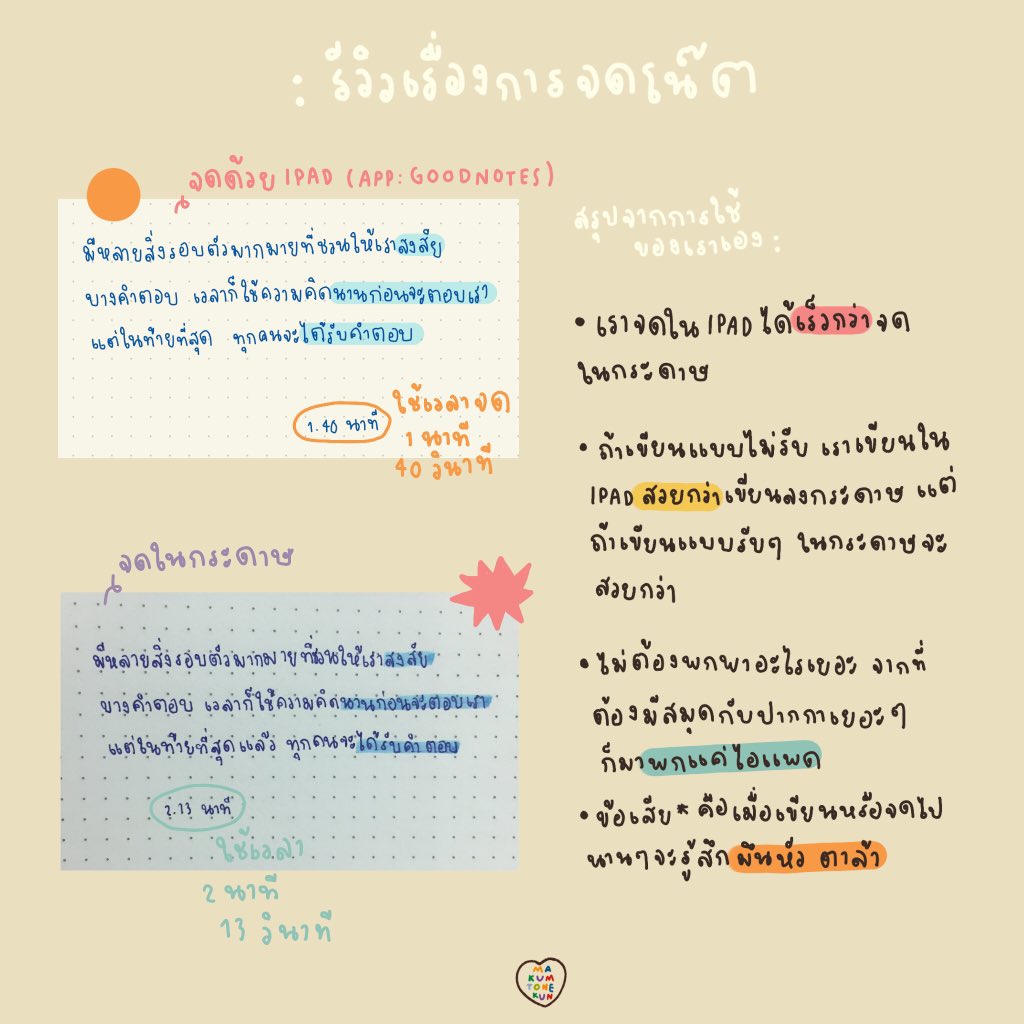 : รีวิวเรื่องการจดโน๊ต
จดด้วย IPAD (APP: GOODNOTES)
มีหลายสิ่งรอบตัวมากมายที่ชวนให้เราสงสัย
บางคำตอบ เวลาก็ใช้ความคิดนานก่อนจะตอบเรา
แต่ในท้ายที่สุด ทุกคนจะได้รับคำตอบ
1.40 นาที
ใช้เวลาจด
1 นาที
40 วินาที
จดในกระดาษ
มีหลายสิ่งรอบตัวมากมายที่ชวนให้เราสงสัย
บางคำตอบ เวลาก็ใช้ความคิดนานก่อนจะตอบเรา
แต่ในท้ายที่สุดแล้ว ทุกคนจะได้รับคำตอบ
2.13 นาที
ใช้เวลา
2 นาที
13 วินาที
สรุปจากการใช้
ของเราเอง :
• เราจดใน IPAD ได้เร็วกว่าจด
ในกระดาษ
• ถ้าเขียนแบบไม่รีบ เราเขียนใน
IPAD สวยกว่าเขียนลงกระดาษ แต่
ถ้าเขียนแบบรีบๆ ในกระดาษจะ
สวยกว่า
• ไม่ต้องพกพาอะไรเยอะ จากที่
ต้องมีสมุดกับปากกาเยอะๆ
ก็มาพกแค่ไอแพด
• ข้อเสีย* คือเมื่อเขียนหรือจดไป
นานๆจะรู้สึกมึนหัว ตาล้า
MA
KUM
TONE
KUN